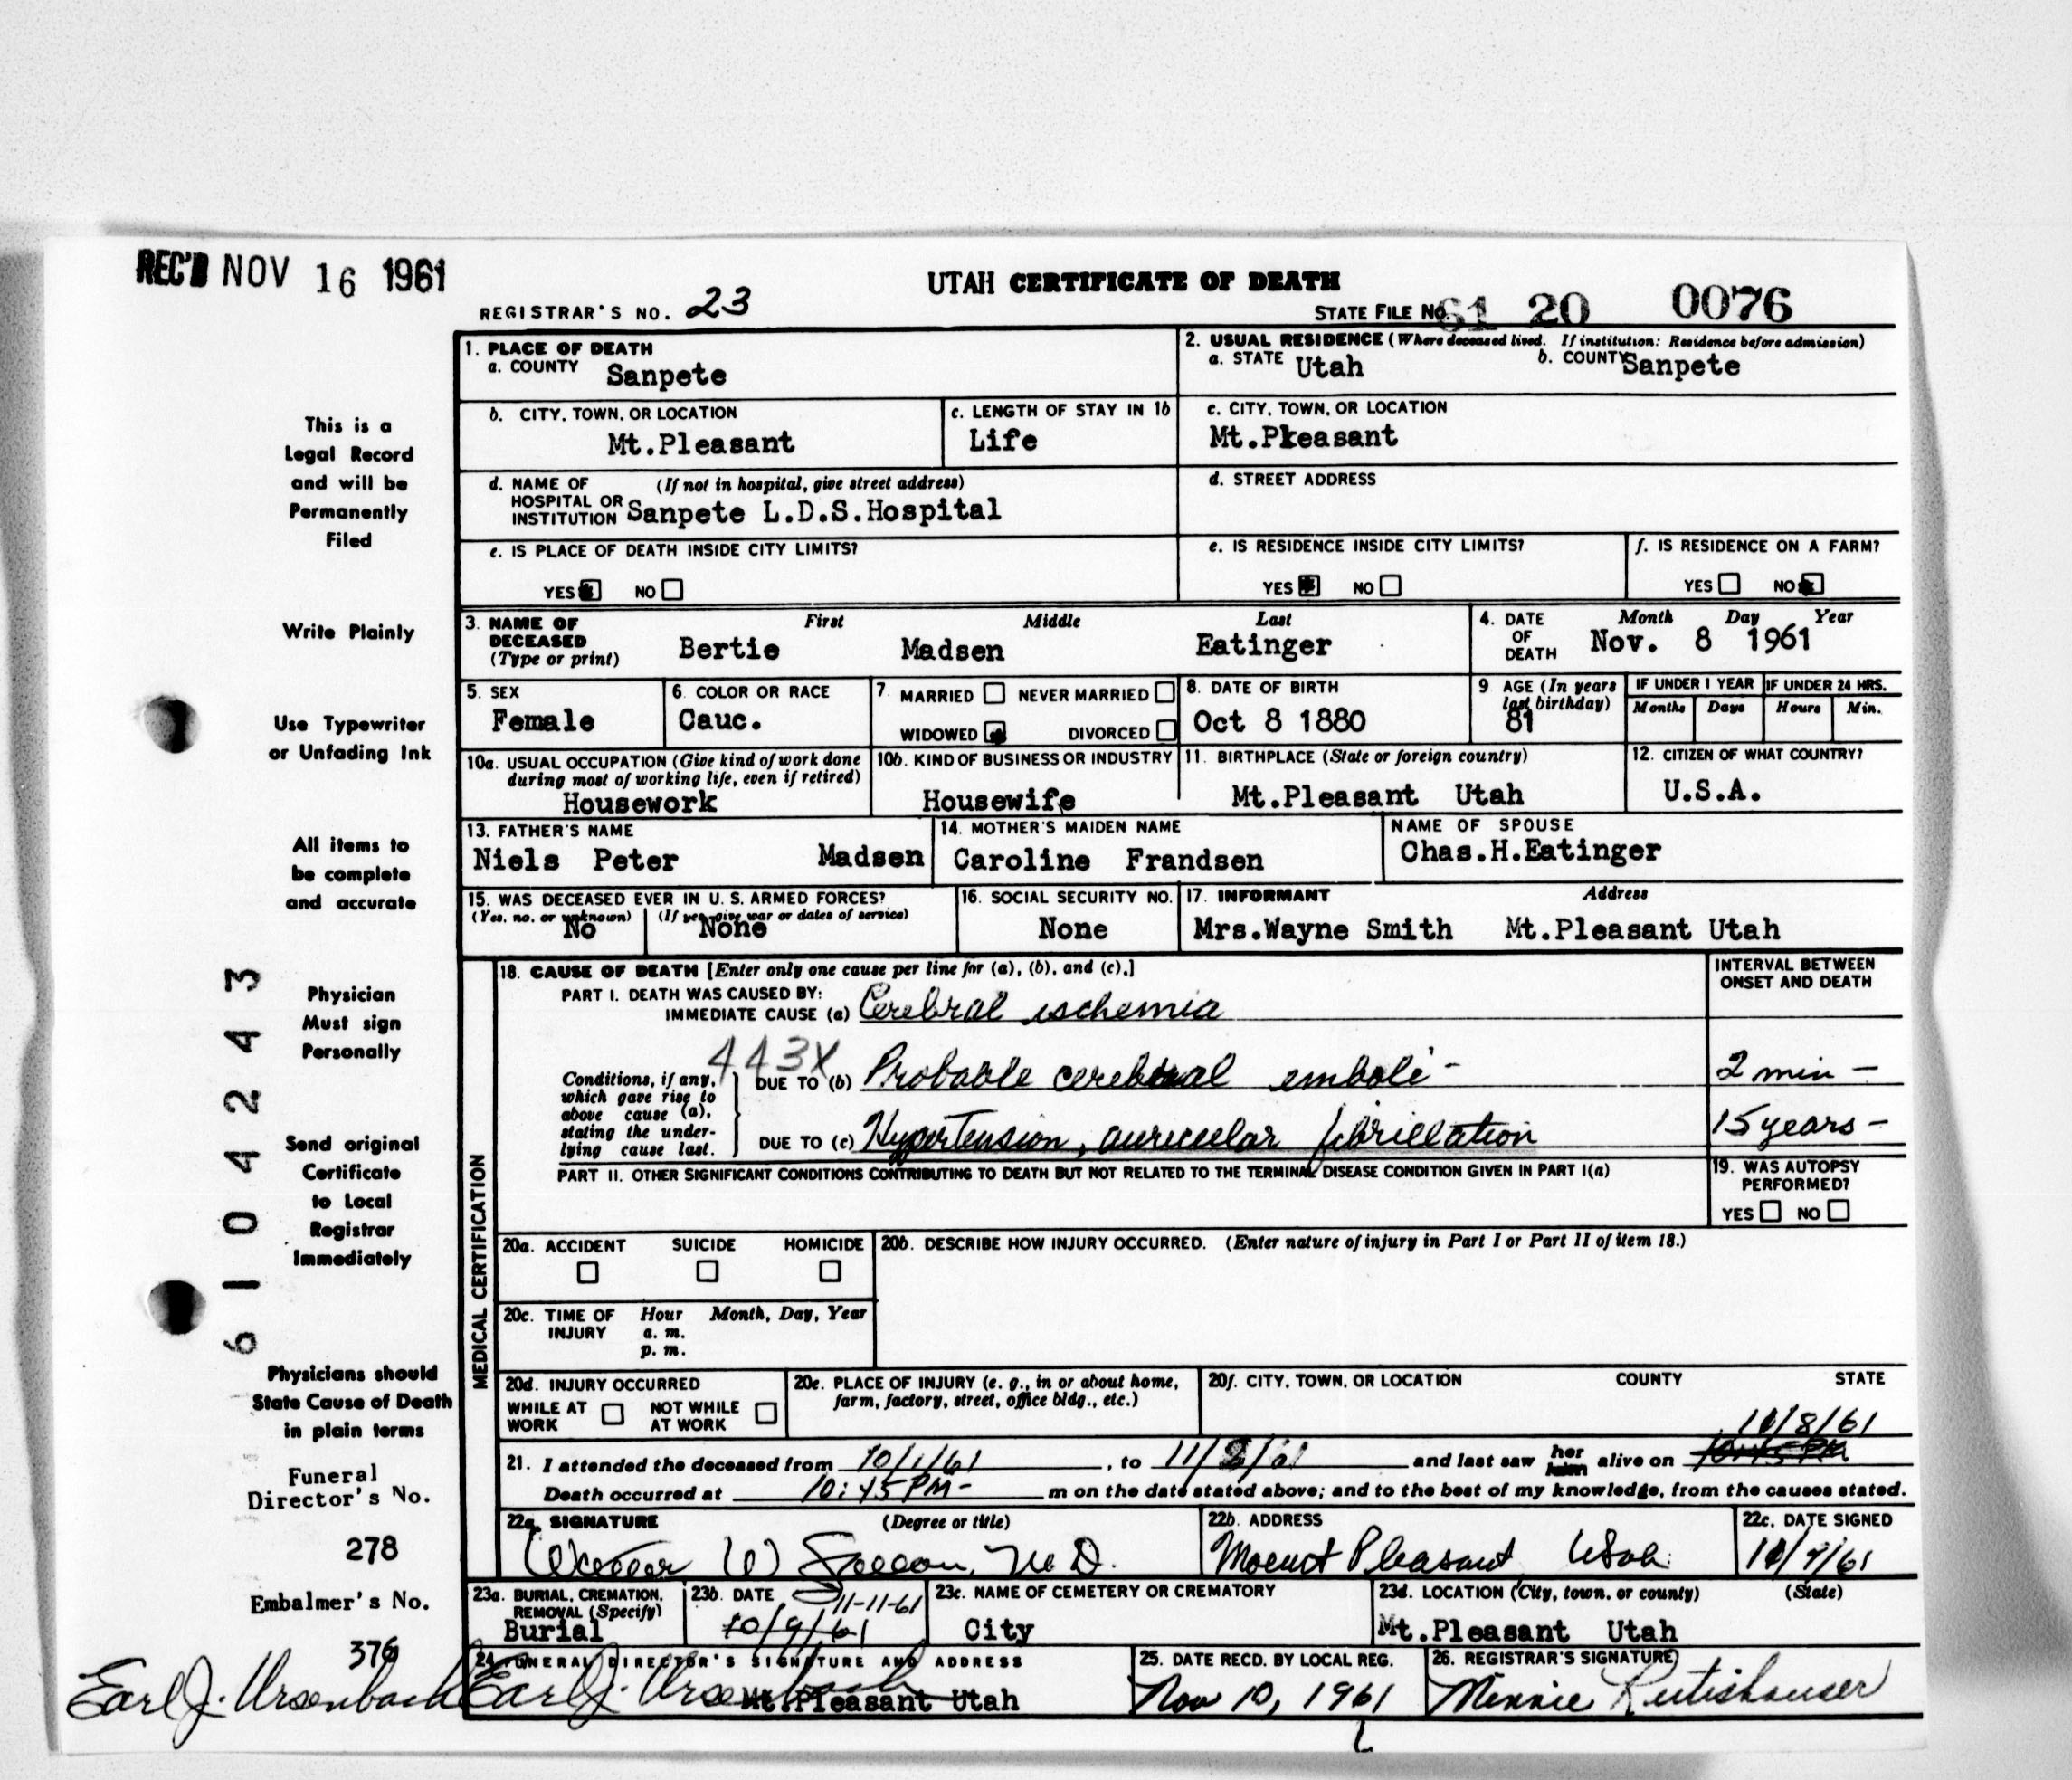 REC'D NOV 16 1961
UTAH CERTIFICATE OF DEATH
REGISTRAR'S NO. 23
STATE FILE NO. 61 20 0076
1. PLACE OF DEATH
a. COUNTY Sanpete
2. USUAL RESIDENCE (Where deceased lived. If institution: Residence before admission)
a. STATE Utah b. COUNTY Sanpete
b. CITY, TOWN, OR LOCATION
Mt.Pleasant
c. LENGTH OF STAY IN 1b
Life
c. CITY, TOWN, OR LOCATION
Mt.Pleasant
d. NAME OF HOSPITAL OR INSTITUTION (If not in hospital, give street address)
Sanpete L.D.S.Hospital
d. STREET ADDRESS
e. IS PLACE OF DEATH INSIDE CITY LIMITS?
YES NO
e. IS RESIDENCE INSIDE CITY LIMITS?
YES NO
f. IS RESIDENCE ON A FARM?
YES NO
3. NAME OF DECEASED (Type or print)
First Middle Last
Bertie Madsen Eatinger
4. DATE OF DEATH
Month Day Year
Nov. 8 1961
5. SEX
Female
6. COLOR OR RACE
Cauc.
7. MARRIED NEVER MARRIED
WIDOWED DIVORCED
8. DATE OF BIRTH
Oct 8 1880
9 AGE (In years last birthday)
81
IF UNDER 1 YEAR
Months Days
IF UNDER 24 HRS.
Hours Min.
10a. USUAL OCCUPATION (Give kind of work done during most of working life, even if retired)
Housework
10b. KIND OF BUSINESS OR INDUSTRY
Housewife
11. BIRTHPLACE (State or foreign country)
Mt.Pleasant Utah
12. CITIZEN OF WHAT COUNTRY?
U.S.A.
13. FATHER'S NAME
Niels Peter Madsen
14. MOTHER'S MAIDEN NAME
Caroline Frandsen
NAME OF SPOUSE
Chas.H.Eatinger
15. WAS DECEASED EVER IN U. S. ARMED FORCES?
(Yes, no, or unknown) (If yes, give war or dates of service)
No None
16. SOCIAL SECURITY NO.
None
17. INFORMANT Address
Mrs.Wayne Smith Mt.Pleasant Utah
18. CAUSE OF DEATH [Enter only one cause per line for (a), (b), and (c).]
INTERVAL BETWEEN ONSET AND DEATH
PART I. DEATH WAS CAUSED BY:
IMMEDIATE CAUSE (a) Cerebral ischemia
443X
Conditions, if any, which gave rise to above cause (a), stating the underlying cause last.
DUE TO (b) Probable cerebral emboli - 2 min -
DUE TO (c) Hypertension, auricular fibrillation 15 years -
PART II. OTHER SIGNIFICANT CONDITIONS CONTRIBUTING TO DEATH BUT NOT RELATED TO THE TERMINAL DISEASE CONDITION GIVEN IN PART I(a)
19. WAS AUTOPSY PERFORMED?
YES NO
20a. ACCIDENT SUICIDE HOMICIDE
20b. DESCRIBE HOW INJURY OCCURRED. (Enter nature of injury in Part I or Part II of item 18.)
20c. TIME OF INJURY
Hour Month, Day, Year
a. m.
p. m.
20d. INJURY OCCURRED
WHILE AT WORK NOT WHILE AT WORK
20e. PLACE OF INJURY (e. g., in or about home, farm, factory, street, office bldg., etc.)
20f. CITY, TOWN, OR LOCATION COUNTY STATE
11/8/61
21. I attended the deceased from 10/1/61, to 11/8/61 and last saw her alive on 10:45 PM
Death occurred at 10:45 PM- m on the date stated above; and to the best of my knowledge, from the causes stated.
22a. SIGNATURE (Degree or title)
W M.D.
22b. ADDRESS
Mount Pleasant Utah
22c. DATE SIGNED
11/9/61
23a. BURIAL, CREMATION, REMOVAL (Specify)
Burial
23b. DATE
11-11-61
10/9/61
23c. NAME OF CEMETERY OR CREMATORY
City
23d. LOCATION (City, town, or county) (State)
Mt.Pleasant Utah
24. FUNERAL DIRECTOR'S SIGNATURE AND ADDRESS
Earl J. Ursenbach
Mt.Pleasant Utah
25. DATE RECD. BY LOCAL REG.
Nov 10, 1961
26. REGISTRAR'S SIGNATURE
Minnie Rutishauser
MEDICAL CERTIFICATION
This is a
Legal Record
and will be
Permanently
Filed
Write Plainly
Use Typewriter
or Unfading Ink
All items to
be complete
and accurate
Physician
Must sign
Personally
Send original
Certificate
to Local
Registrar
Immediately
Physicians should
State Cause of Death
in plain terms
Funeral
Director's No.
278
Embalmer's No.
376
Earl J. Ursenbach
6104243